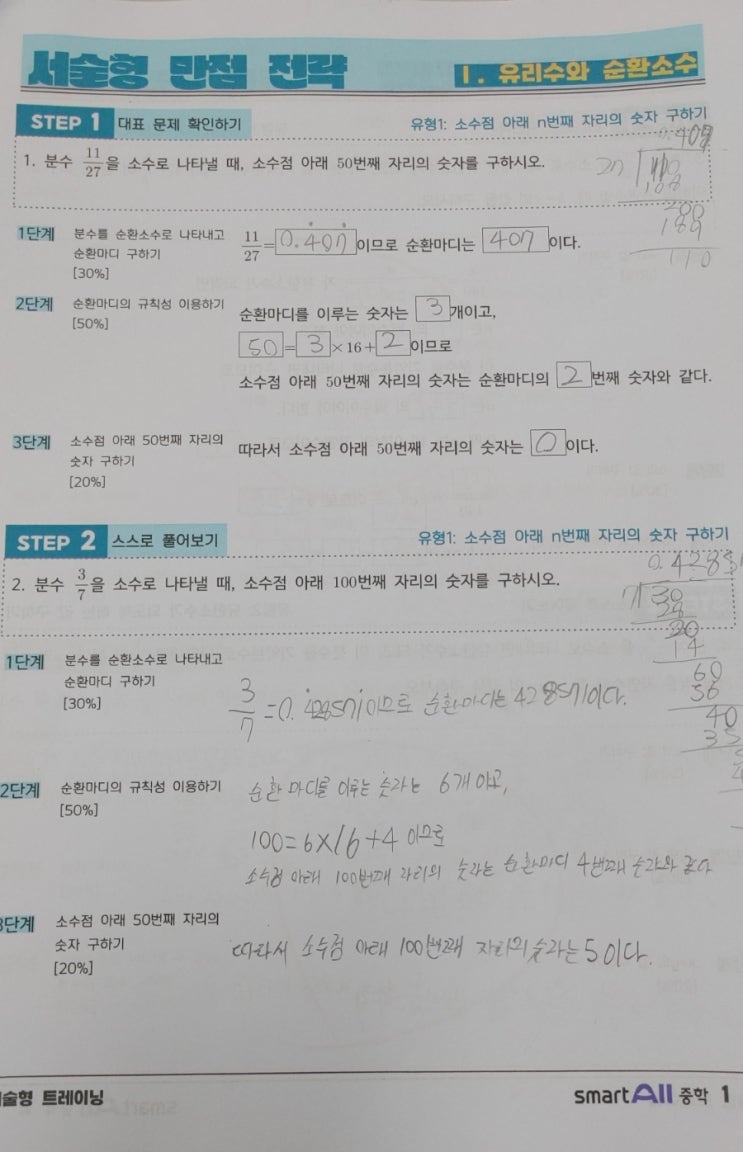 서술형 만점 전략
Ⅰ. 유리수와 순환소수
STEP 1 대표 문제 확인하기
유형1: 소수점 아래 n번째 자리의 숫자 구하기
1. 분수 11/27을 소수로 나타낼 때, 소수점 아래 50번째 자리의 숫자를 구하시오.
0.407
27 110
108
200
189
110
1단계 분수를 순환소수로 나타내고
순환마디 구하기
[30%]
11/27 = 0.4̇07̇ 이므로 순환마디는 407 이다.
2단계 순환마디의 규칙성 이용하기
[50%]
순환마디를 이루는 숫자는 3 개이고,
50 = 3 × 16 + 2 이므로
소수점 아래 50번째 자리의 숫자는 순환마디의 2 번째 숫자와 같다.
3단계 소수점 아래 50번째 자리의
숫자 구하기
[20%]
따라서 소수점 아래 50번째 자리의 숫자는 0 이다.
STEP 2 스스로 풀어보기
유형1: 소수점 아래 n번째 자리의 숫자 구하기
2. 분수 3/7을 소수로 나타낼 때, 소수점 아래 100번째 자리의 숫자를 구하시오.
7 30
28
20
14
60
56
40
35
1단계 분수를 순환소수로 나타내고
순환마디 구하기
[30%]
3/7 = 0.4̇28571̇ 이므로 순환마디는 428571이다.
2단계 순환마디의 규칙성 이용하기
[50%]
순환마디를 이루는 숫자는 6개 이고,
100=6×16+4 이므로
소수점 아래 100번째 자리의 숫자는 순환마디 4번째 숫자와 같다
3단계 소수점 아래 50번째 자리의
숫자 구하기
[20%]
따라서 소수점 아래 100번째 자리의 숫자는 5이다.
서술형 트레이닝
smartAll 중학 1